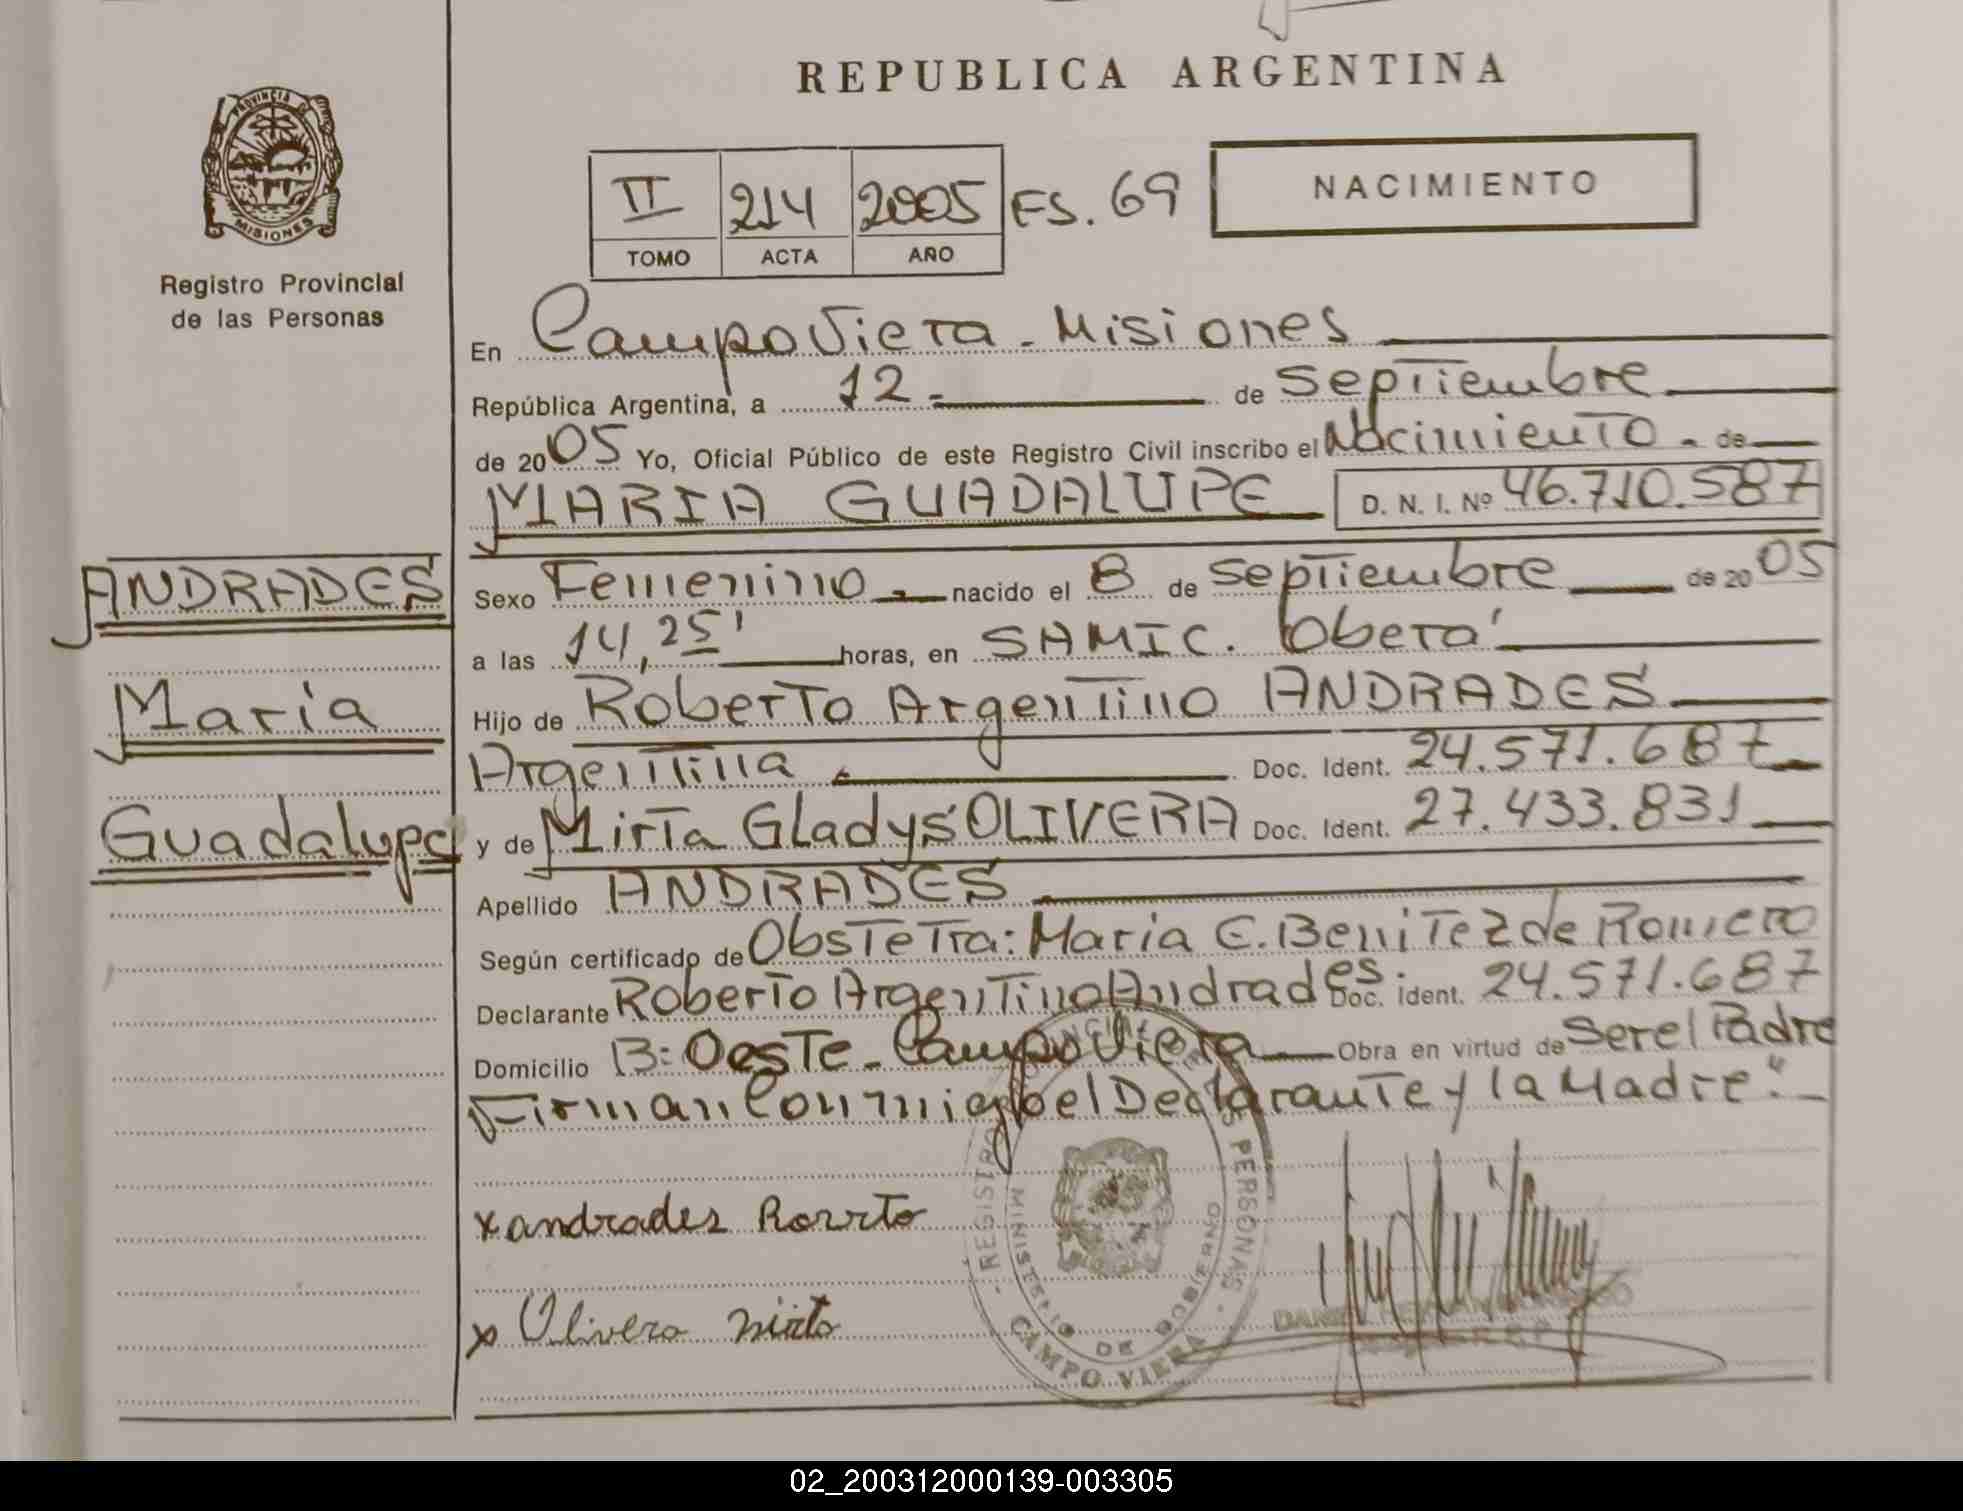 REPUBLICA ARGENTINA
PROVINCIA DE
MISIONES
Registro Provincial
de las Personas
II 214 2005 FS. 69
TOMO ACTA AÑO
NACIMIENTO
En Campo Viera - Misiones
República Argentina, a 12 - de Septiembre
de 2005 Yo, Oficial Público de este Registro Civil inscribo el Nacimiento - de
MARIA GUADALUPE D. N. I. Nº 46.710.587
ANDRADES
Maria
Guadalupe
Sexo Femenino - nacido el 8 de Septiembre de 2005
a las 14,25' horas, en SAMIC. Oberá
Hijo de Roberto Argentino ANDRADES
Argentina - Doc. Ident. 24.571.687
y de Mirta Gladys OLIVERA Doc. Ident. 27.433.831
Apellido ANDRADES
Según certificado de Obstetra: Maria E. Benitez de Romero
Declarante Roberto Argentino Andrades Doc. Ident. 24.571.687
Domicilio B: Oeste - Campo Viera Obra en virtud de Ser el Padre
Firman Conmigo el Declarante y la Madre".-
x andrades Rorrto
x Olivera mirta
REGISTRO PROVINCIAL DE LAS PERSONAS - CAMPO VIERA
MINISTERIO DE GOBIERNO
02_200312000139-003305